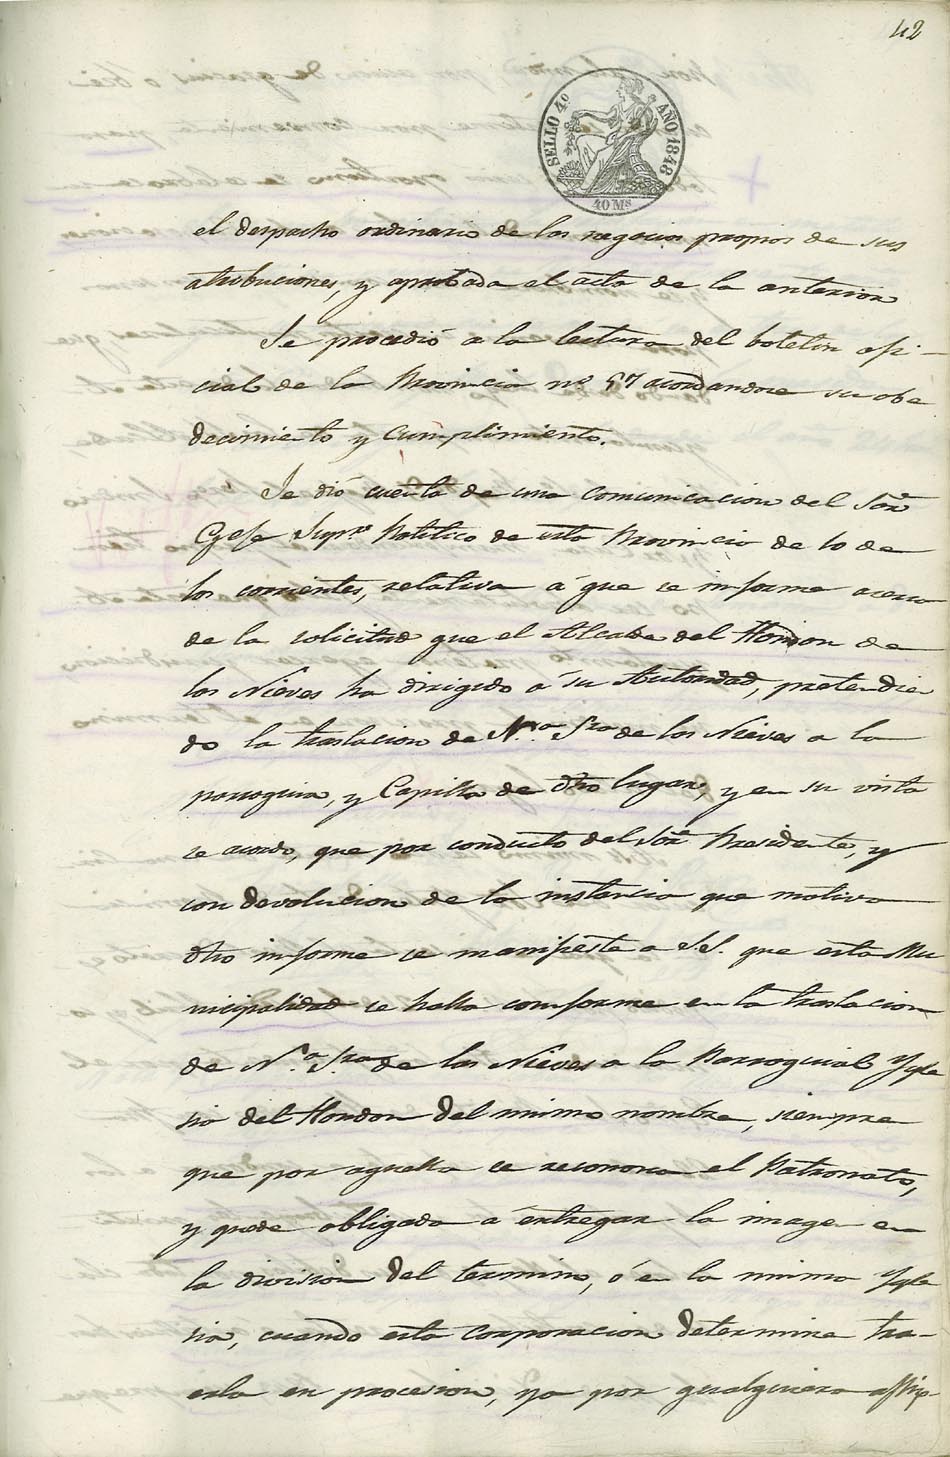 42
SELLO 4º AÑO 1848
40 Ms
el despacho ordinario de los negocios propios de sus
atribuciones, y aprobada el acta de la anterior
Se procedió a la lectura del boletin ofi-
cial de la Provincia nº 57 acordandose su obe
decimiento y cumplimiento.
Se dió cuenta de una comunicacion del Sor
Gefe Supr Politico de esta Provincia de 10 de
los corrientes, relativa á que se informe acerca
de la solicitud que el Alcalde del Hondon de
las Nieves ha dirigido á su Autoridad, pretendien
do la traslacion de N.a Sra de las Nieves a la
parroquia, y Capilla de dho lugar, y en su vista
se acordo, que por conducto del Sor Presidente, y
con devolucion de la instancia que motiva
dho informe se manifieste a S.S. que esta Mu
nicipalidad se halla conforme en la traslacion
de N.a Sra de las Nieves a la Parroquial Ygle
sia del Hondon del mismo nombre, siempre
que por aquella se reconosca el Patronato,
y quede obligada á entregar la imagen en
la division del termino, ó en la misma Ygle
sia, cuando esta Corporacion determine tra-
erla en procesion, ya por qualquiera